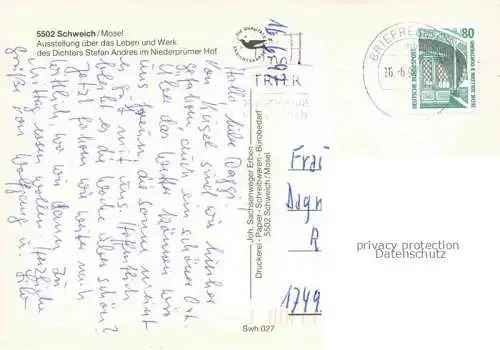 5502 Schweich/Mosel
Ausstellung über das Leben und Werk
des Dichters Stefan Andres im Niederprümer Hof
Hallo liebe Daggi!
Von Kügel sind wir hierher
gefahren, auch ein schöner Ort.
Über das Wetter können wir
uns freuen die Sonne meint
es gut mit uns. Hoffentlich
bleibt es die Woche über schön?
Jetzt fahren wir weiter nach
wo wir dann zu
Mittag essen wollen. Herzliche
Grüße von Wolfgang u.
Joh. Sachsenweger Erben
Druckerei - Papier - Schreibwaren - Bürobedarf
5502 Schweich/Mosel
Swh 027
TRIER
BRIEFRE
16.-6.9
80
DEUTSCHE BUNDESPOST
ZECHE ZOLLERN II DORTMUND
Frau
Dagm
R
1749
privacy protection
Datenschutz